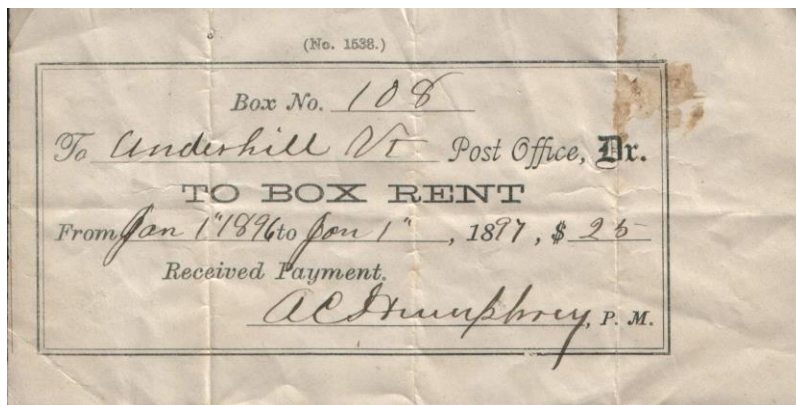 (No. 1538.)
Box No. 108
To Underhill Vt Post Office, Dr.
TO BOX RENT
From Jan 1" 1896 to Jan 1", 1897, $ 25
Received Payment.
A C Humphrey, P. M.